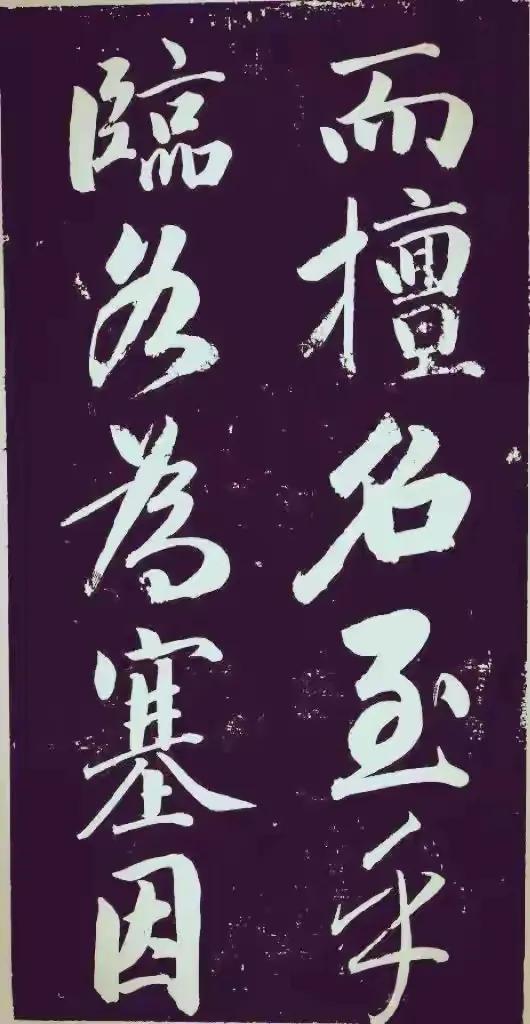 而擅名至乎
臨谷為塞因